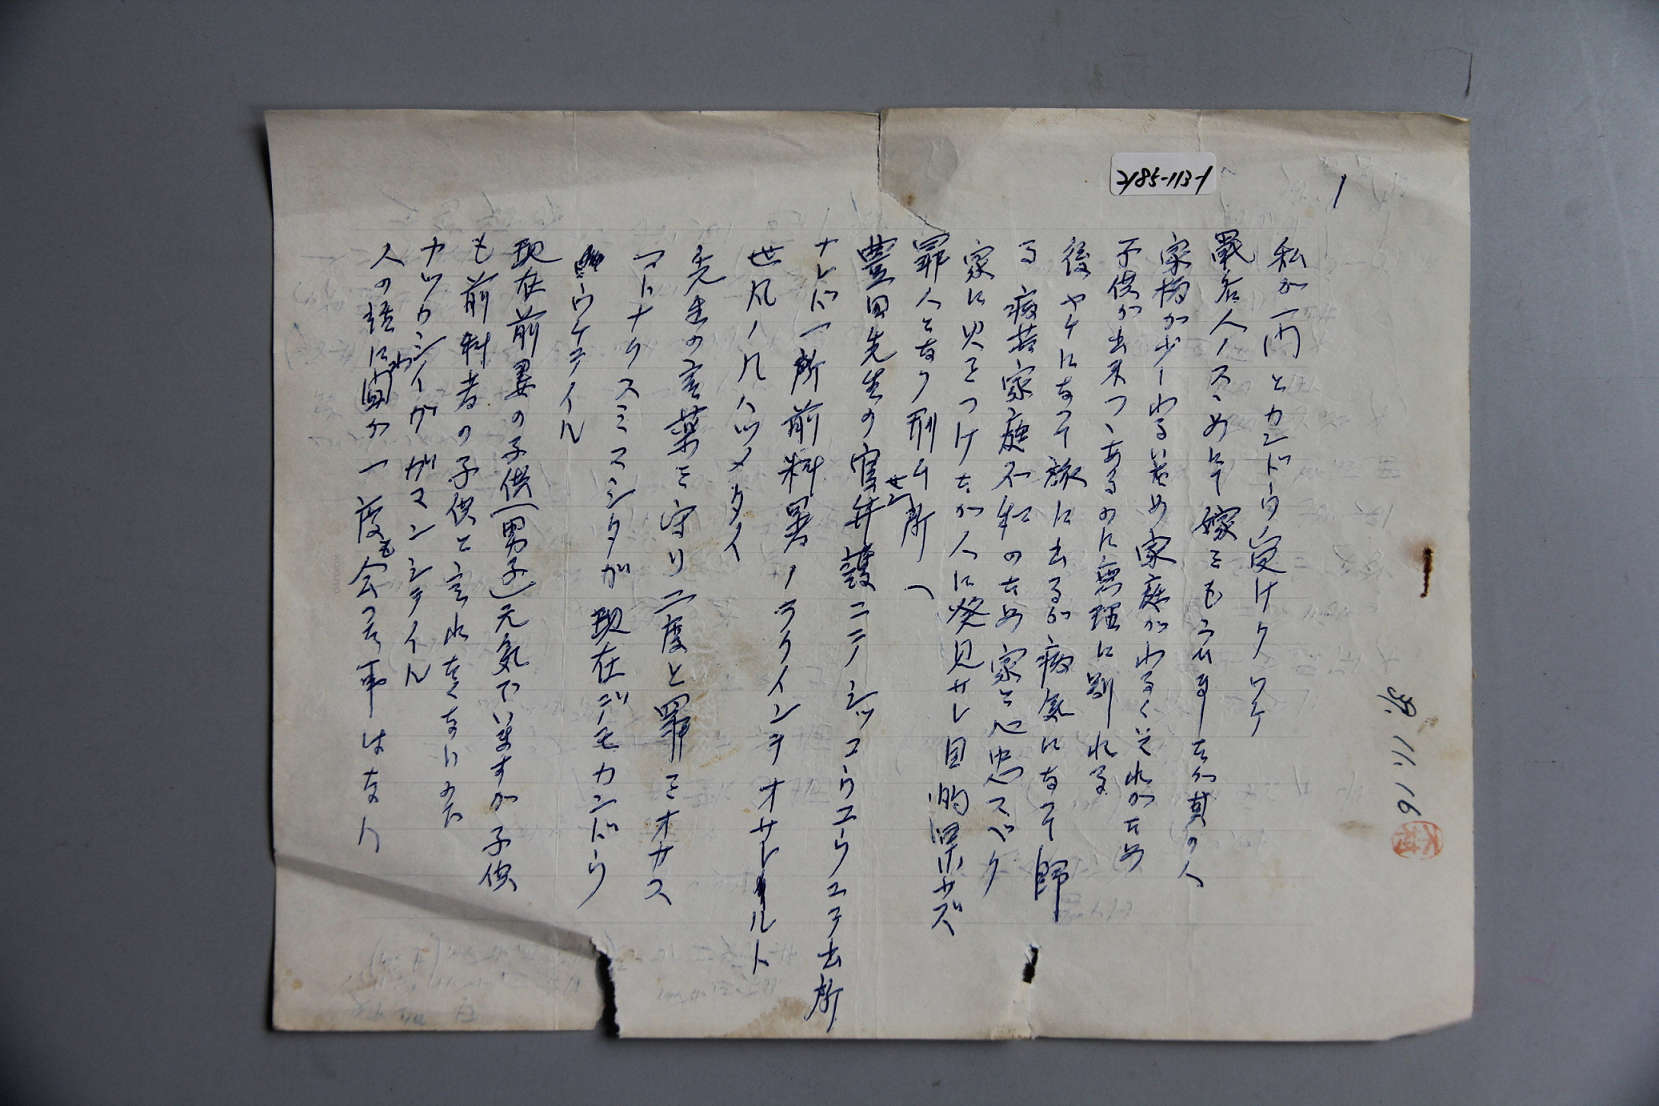 2185-113-1
1
私が一門とカンドウ受けタワケ
家柄が少しわるいため家庭がわるくそれがため
子供が出来つゝあるのに無理に別れる
後ヤケになって旅に出るが病気になって帰
る 病苦家庭不和のため家を心中スベク
家に火をつけたが人に発見サレ目的果サズ
罪人となり刑ム所へ
豊田先生の官弁護ニテシッコウユウヨデ出所
ナレド一所前科者ノラクインヲオサレルト
世風ノ風ハツメタイ
先生の言葉を守り二度と罪をオカス
マトナクスミマシタが現在デモカンドウ
ウケテイル
現在前妻の子供(男子)元気でいますが子供
も前科者の子供と言れたくないため
ナツカシイガガマンシテイル
人の話に聞が一度も会った事はない
39. 11. 16